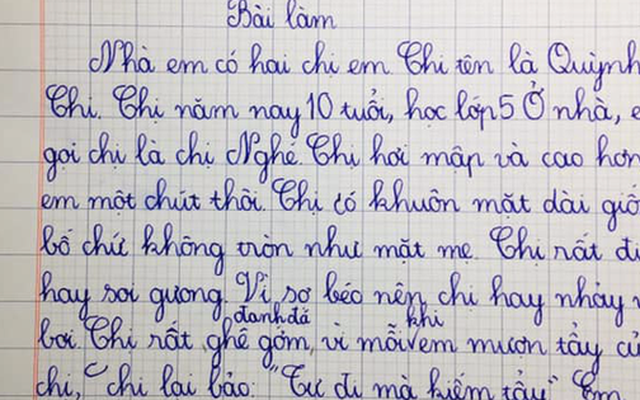 Bài làm
Nhà em có hai chị em Chị tên là Quỳnh
Chi. Chị năm nay 10 tuổi, học lớp 5 Ở nhà, e
gọi chị là chị Nghé. Chị hơi mập và cao hơn
em một chút thôi. Chị có khuôn mặt dài giố
bố chứ không tròn như mặt mẹ. Chị rất đi
hay soi gương. Vì sợ béo nên chị hay nhảy v
đanh đá khi
bơi. Chị rất ghê gớm, vì mỗi em mượn tẩy củ
chị, chị lại bảo: "Tự đi mà kiếm tẩy" Em